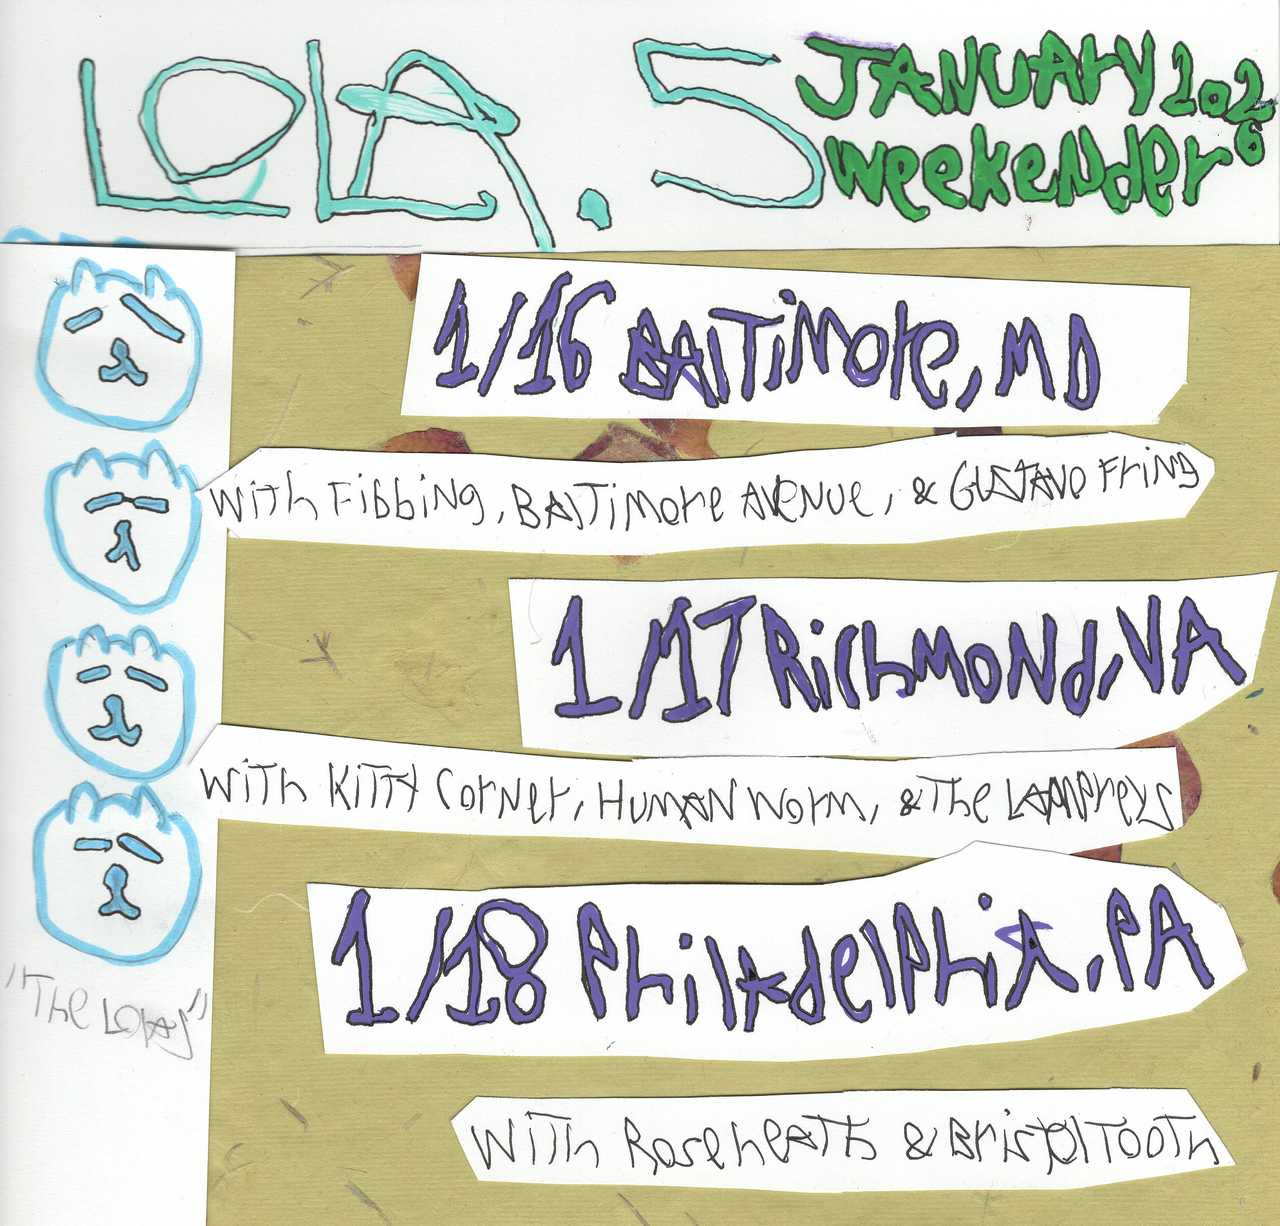 LOLA. 5
JANUARY 2026
Weekender
1/16 BALTiMore, MD
With Fibbing, BALTiMore AVeNue, & GUSTAVO Fring
1/17 RichMoNd, VA
With Kitty CorNer, HUMAN Worm, & The LAMPreys
1/18 PhilAdelPhiA, PA
With RoseheATh & BrisTol TooTh
"The LolAs"